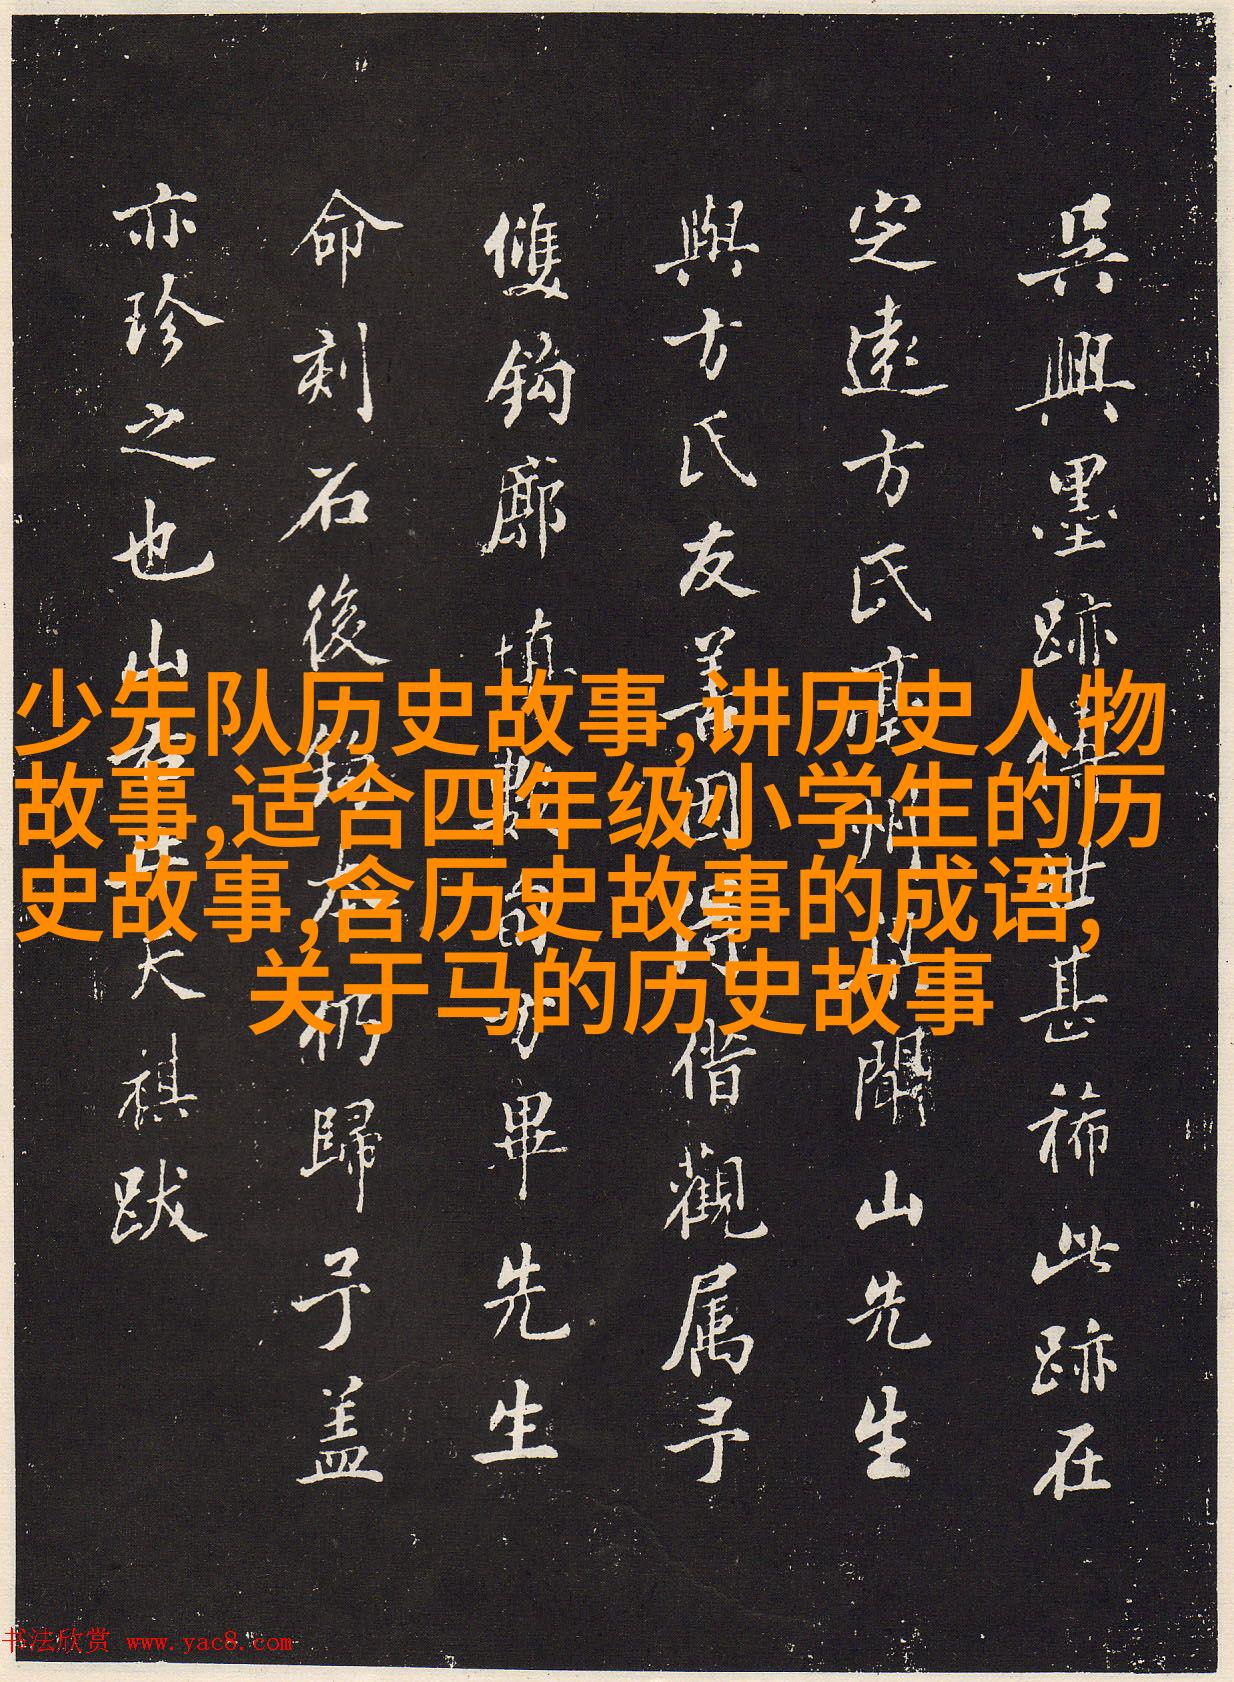 吳興墨跡傳世甚稀此跡在
定遠方氏聞山先生
與方氏友善因得借觀属予
雙鈎廓填數旬畢先生
命刻石後鈎本仍歸予盖
亦珍之也山天祺跋
少先队历史故事,讲历史人物
故事,适合四年级小学生的历
史故事,含历史故事的成语,
关于马的历史故事
书法欣赏 www.yac8.com